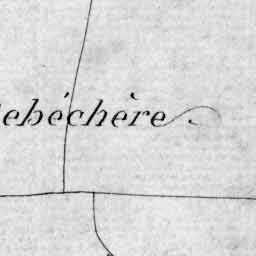 ebéchère